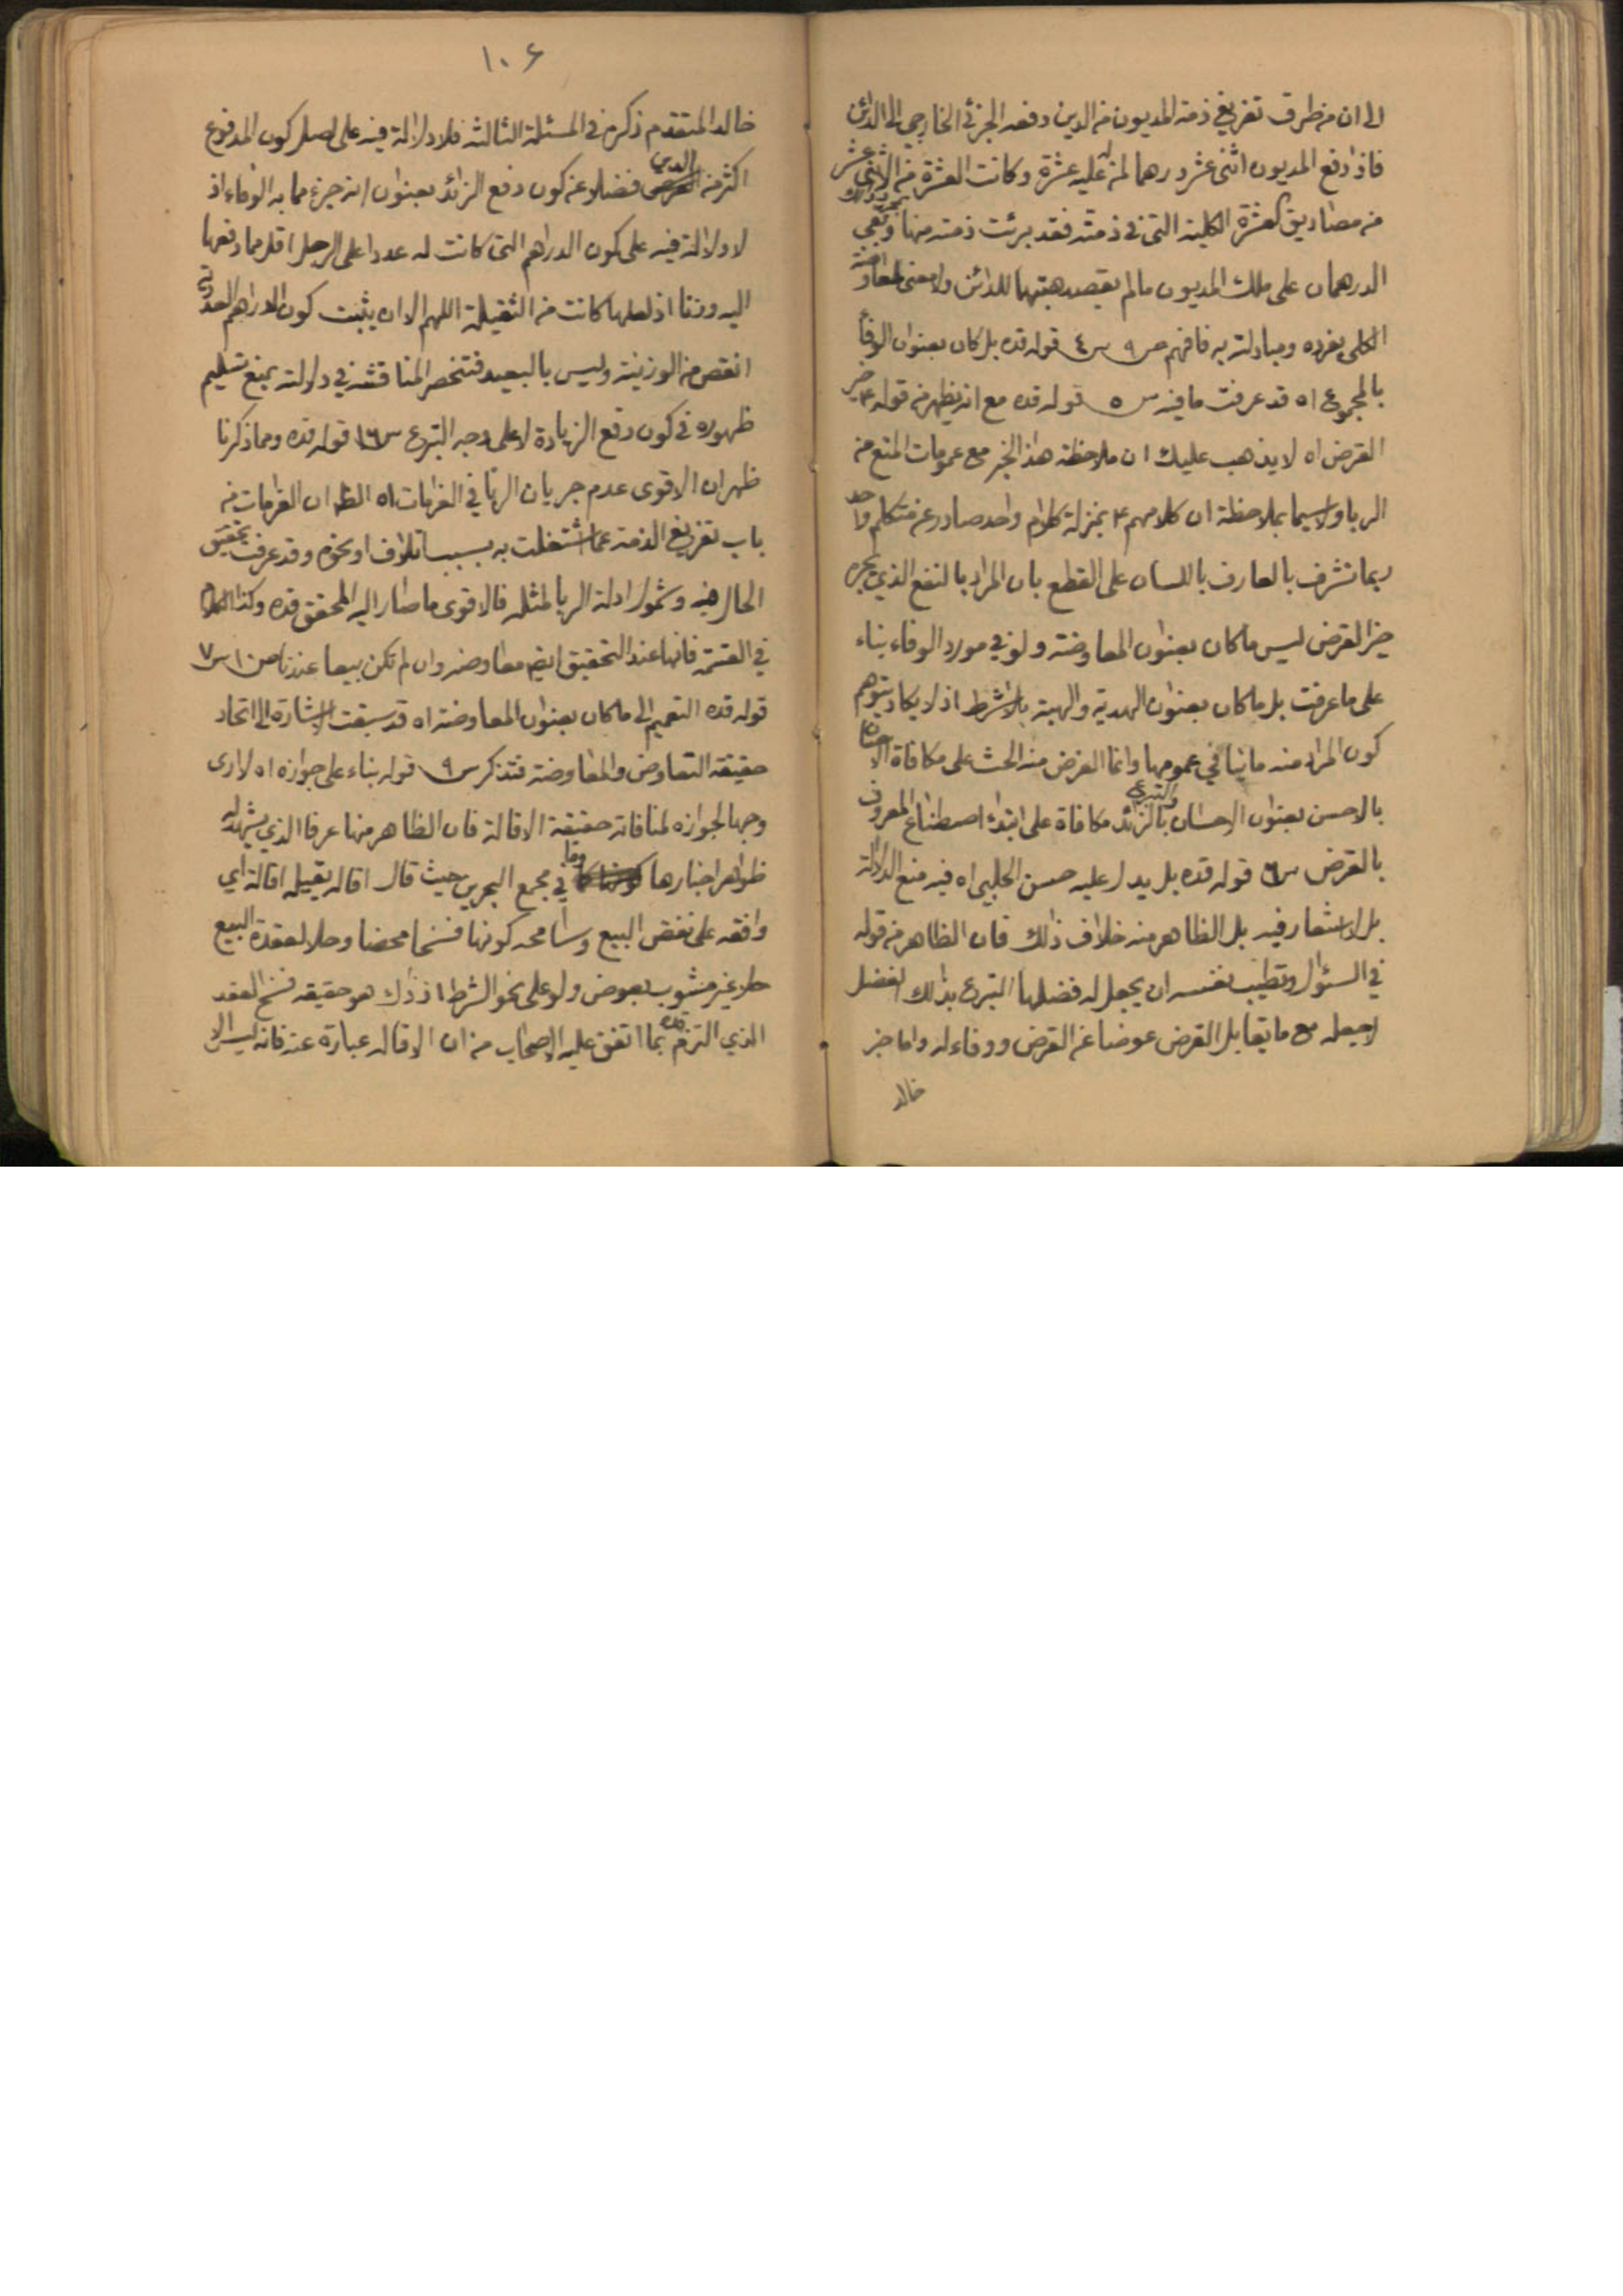 الى ان من طرق تفريغ ذمة المديون من الدين دفعه الجزئي الخارجي الى الدائن
فاذا دفع المديون اثنى عشر درهما لمن له عليه عشرة وكانت العشرة من الاثنى عشر
من مصاديق العشرة الكلية التى فى ذمته فقد برئت ذمته منها وبقى
الدرهمان على ملك المديون مالم يقصد هبتهما للدائن ولا معنى لمعاوضة
الكلى بفرده ومبادلته به فافهم ص ٩ س ٤ قوله قده بل كان بعنوان الوفاء
بالمجموع اه قد عرفت ما فيه س ٥ قوله قده مع انه يظهر من قوله ع خير
القرض اه لا يذهب عليك ان ملاحظة هذا الخبر مع عمومات المنع من
الربا ولا سيما بملاحظة ان كلامهم ع بمنزلة كلام واحد صادر عن متكلم واحد
ربما تشرف بالعارف باللسان على القطع بان المراد بالنفع الذي يجره
خير القرض ليس ما كان بعنوان المعاوضة ولو في مورد الوفاء بناء
على ما عرفت بل ما كان بعنوان الهدية والهبة بلا شرط اذ لا يكاد يتوهم
كون المراد منه ما ينافي عمومها وانما الغرض منه الحث على مكافاة الاحسان
بالاحسن بعنوان الاحسان والتبرع بالزائد مكافاة على ابتداء اصطناع المعروف
بالقرض س ٦ قوله قده بل يدل عليه حسن الحلبي اه فيه منع الدلالة
بل لا اشعار فيه بل الظاهر منه خلاف ذلك فان الظاهر من قوله
في السؤال وتطيب نفسه ان يجعل له فضلها التبرع بذلك الفضل
لا جعله مع ما يقابل القرض عوضا عن القرض ووفاء له واما خبر
خالد
١٠٦
خالد المتقدم ذكره في المسئلة الثالثة فلا دلالة فيه على اصل كون المدفوع
اكثر من الدين فضلا عن كون دفع الزائد بعنوان انه جزء مما به الوفاء اذ
لا دلالة فيه على كون الدراهم التى كانت له عددا على الرجل اقل مما دفعها
اليه وزنا اذ لعلها كانت من الثقيلة اللهم الا ان يثبت كون الدراهم العددية
انقص من الوزنية وليس بالبعيد فتنحصر المناقشة في دلالته بمنع تسليم
ظهوره في كون دفع الزيادة لا على وجه التبرع س ١٦ قوله قده ومما ذكرنا
ظهر ان الاقوى عدم جريان الربا في الغرامات اه الظ ان الغرامات من
باب تفريغ الذمة عما اشتغلت به بسبب اتلاف او نحوه وقد عرفت تحقيق
الحال فيه وشمول ادلة الربا لمثله فالاقوى ما صار اليه المحقق قده وكذا الكلام
في القسمة فانها عند التحقيق ايضا معاوضة وان لم تكن بيعا عندنا ص ١٠ س ٧
قوله قده التعميم الى ما كان بعنوان المعاوضة اه قد سبقت الاشارة الى اتحاد
حقيقة التعاوض والمعاوضة فتذكر س ٩ قوله بناء على جوازه اه لا ارى
وجها لجوازه لمنافاته حقيقة الاقالة فان الظاهر منها عرفا الذي يشهد له
ظواهر اخبارها وما في مجمع البحرين حيث قال اقاله يقيله اقالة اي
وافقه على نقض البيع وسامحه كونها فسخا محضا وحلا لعقدة البيع
حلا غير مشوب بعوض ولو على نحو الشرط اذ ذاك هو حقيقة فسخ العقد
الذي التزم قده بما اتفق عليه الاصحاب من ان الاقالة عبارة عنه فانه ليس الا